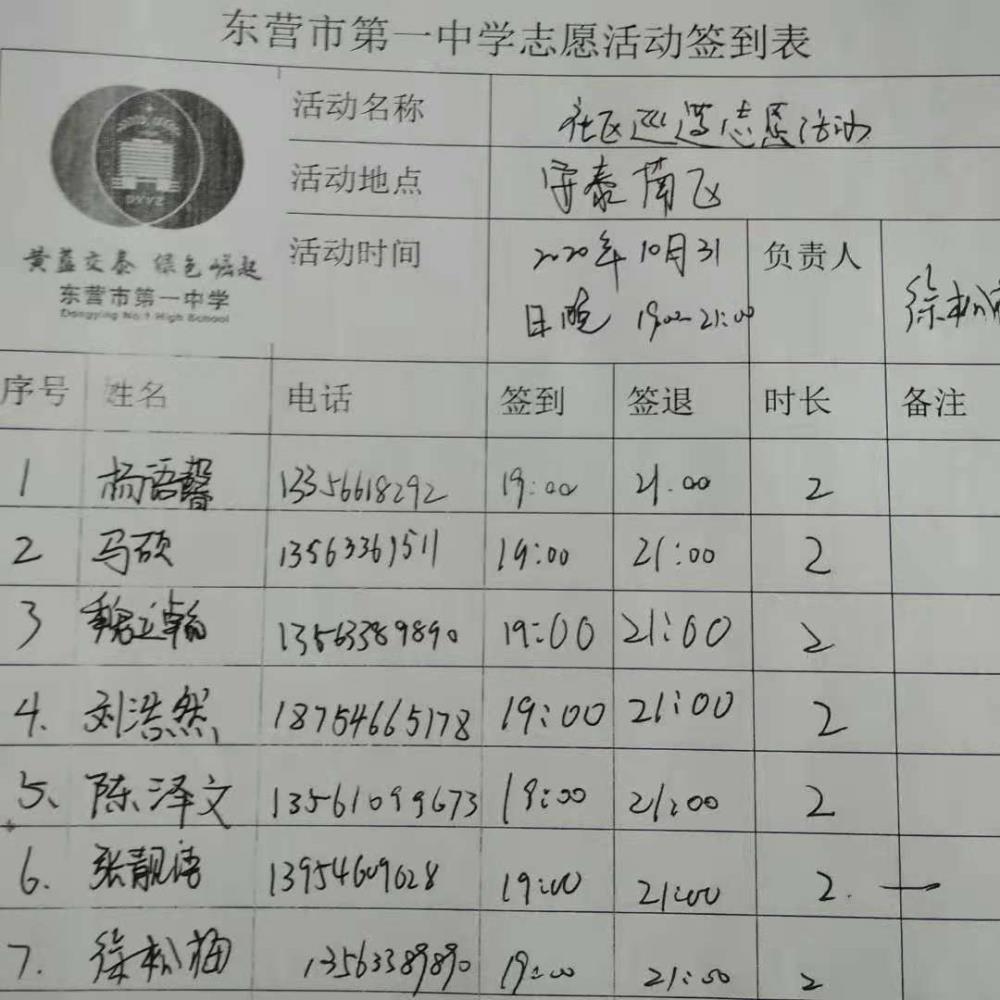 东营市第一中学志愿活动签到表
活动名称 社区巡逻志愿活动
活动地点 安泰南区
活动时间 2020年10月31日晚 19:00-21:00 负责人 徐松梅
黄蓝交泰 绿色崛起
东营市第一中学
Dongying No.1 High School
DYYZ
序号 姓名 电话 签到 签退 时长 备注
1 杨语馨 13356618292 19:00 21:00 2
2 马硕 13563361511 19:00 21:00 2
3 魏立翰 13563389890 19:00 21:00 2
4. 刘浩然 18754665178 19:00 21:00 2
5、 陈泽文 13561099673 19:00 21:00 2
6. 张靓倩 13954609028 19:00 21:00 2. —
7. 徐松梅 13563389890 19:00 21:00 2